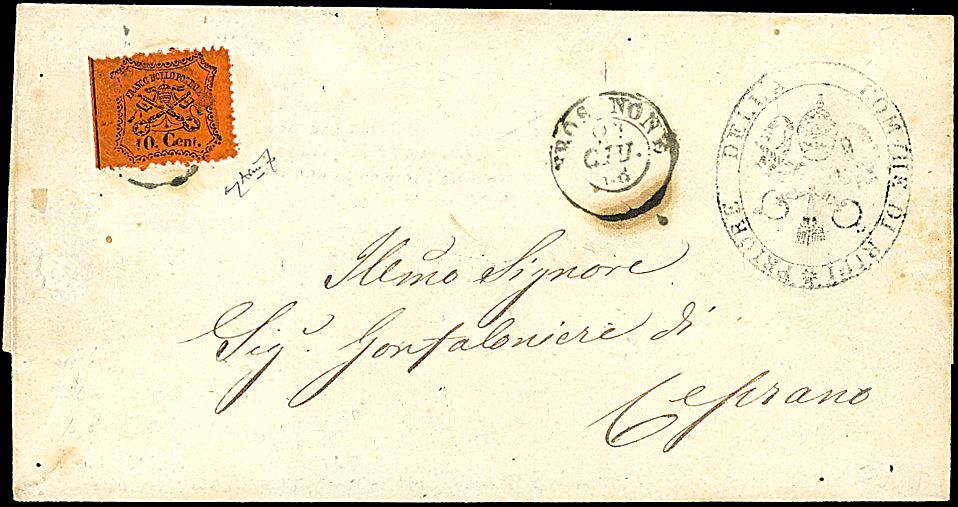 FRANCO BOLLO POSTALE
10. Cent.
FROSINONE
GIU.
PRIORE DELLA COMUNE DI RIPI
Illmo Signore
Sig. Gonfaloniere di
Ceprano